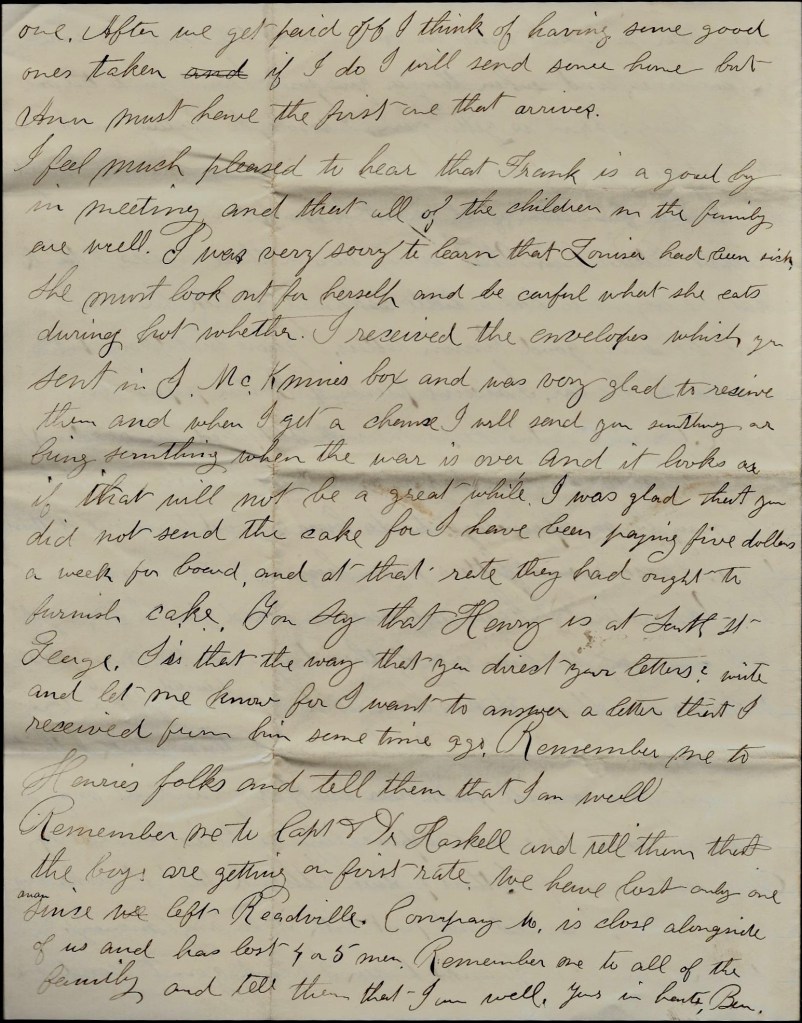 one. After we get paid off I think of having some good
ones taken and if I do I will send some home but
Ann must have the first one that arrives.
I feel much pleased to hear that Frank is a good by
in meeting and that all of the children in the family
are well. I was very sorry to learn that Louisa had been sick,
she must look out for herself and be carful what she eats
during hot whether. I received the envelopes which you
sent in J. Mc. Kinnies box and was very glad to receive
them and when I get a chance I will send you somthing or
bring somthing when the war is over and it looks as
if that will not be a great while. I was glad that you
did not send the cake for I have been paying five dollars
a week for board, and at that rate they had ought to
furnish cake. You say that Henry is at South St
George. Is that the way that you direct your letters? write
and let me know for I want to answer a letter that I
received from him some time ago. Remember me to
Henries folks and tell them that I am well
Remember me to Capt & Haskell and tell them that
the boys are getting on first rate. We have lost only one
man
since we left Readville. Company is close alongside
of us and has lost 4 or 5 men. Remember me to all of the
family and tell them that I am well. Yours in haste, Ben.